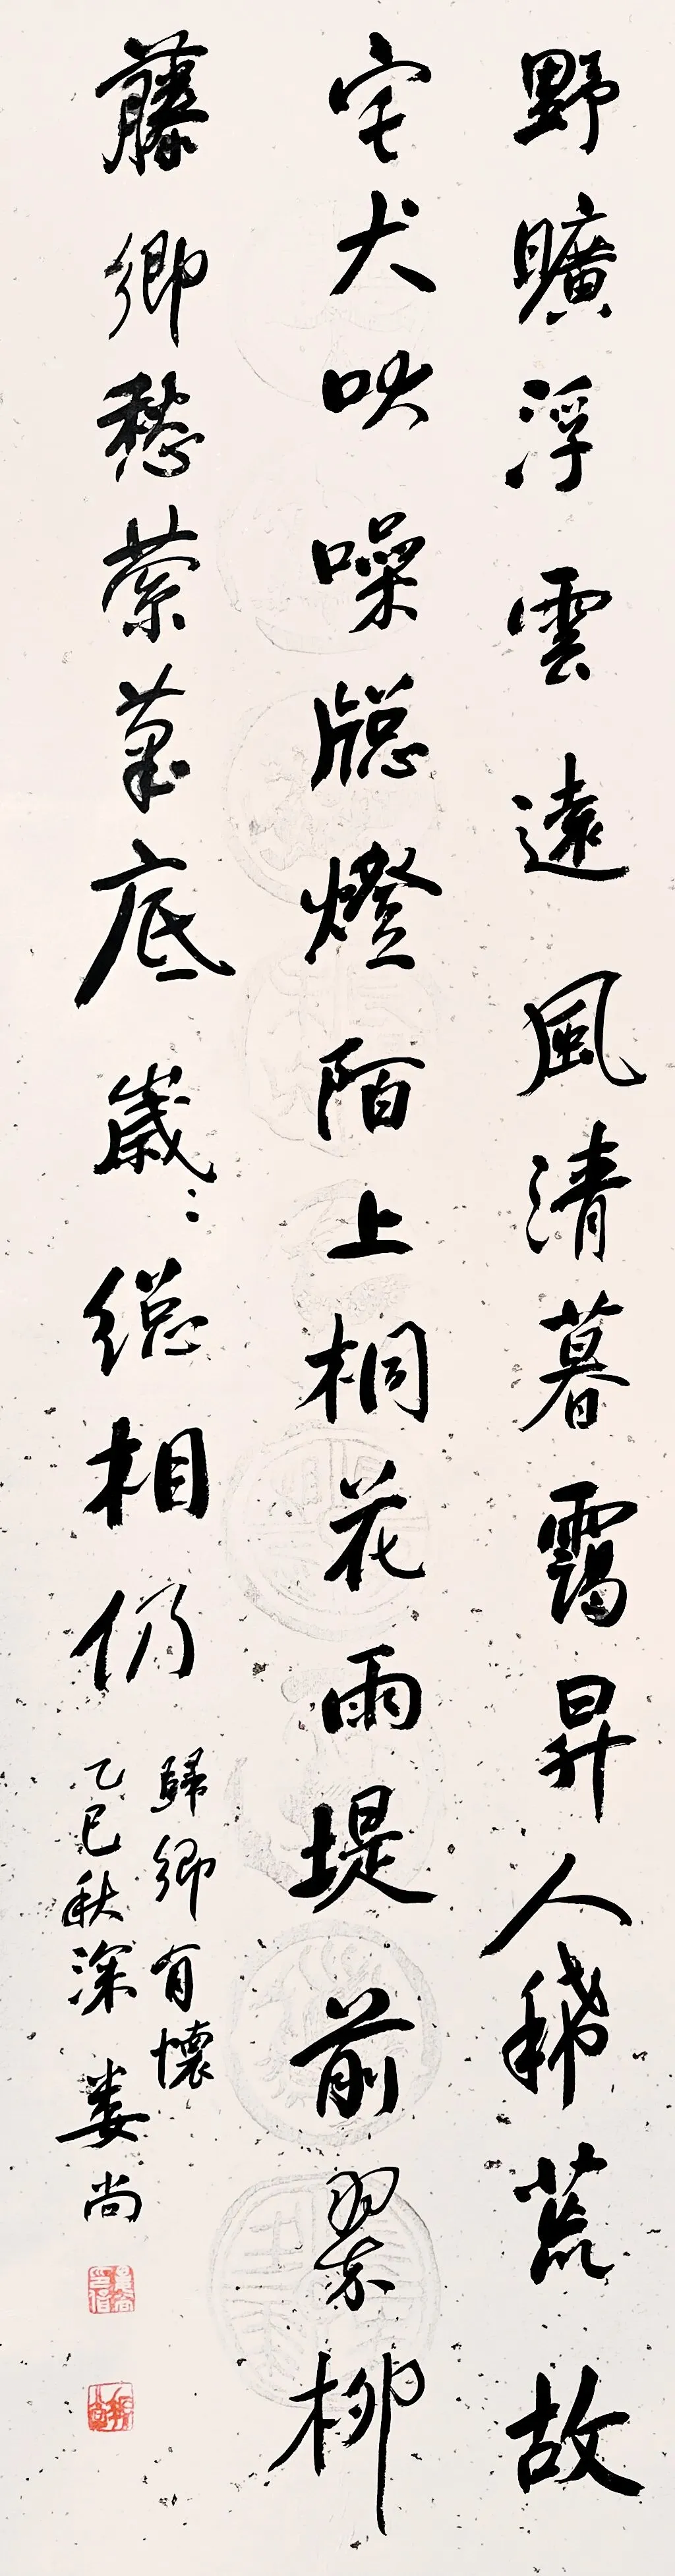 野曠浮雲遠風清暮靄昇人稀荒故
宅犬吠噪牕燈陌上桐花雨堤前翠柳
藤鄉愁縈筆底歲〻總相仍
歸鄉有懷
乙巳秋深 婁尚